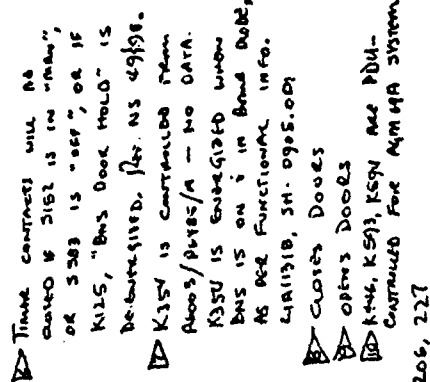 6 TIMER CONTACTS WILL BE
CLOSED IF S152 IS IN "MAN",
OR S383 IS "OFF", OR IF
K125, "BNS DOOR HOLD" IS
DE-ENERGIZED. NS
7 K354 IS CONTROLLED FROM
— NO DATA.
K354 IS ENERGIZED WHEN
BNS IS ON & IN BOMB MODE,
AS PER FUNCTIONAL INFO.
SH. 0905.09
8 CLOSES DOORS
9 OPENS DOORS
10 K446, K593, K594 ARE PDU-
CONTROLLED FOR AGM 69A SYSTEM
206, 227